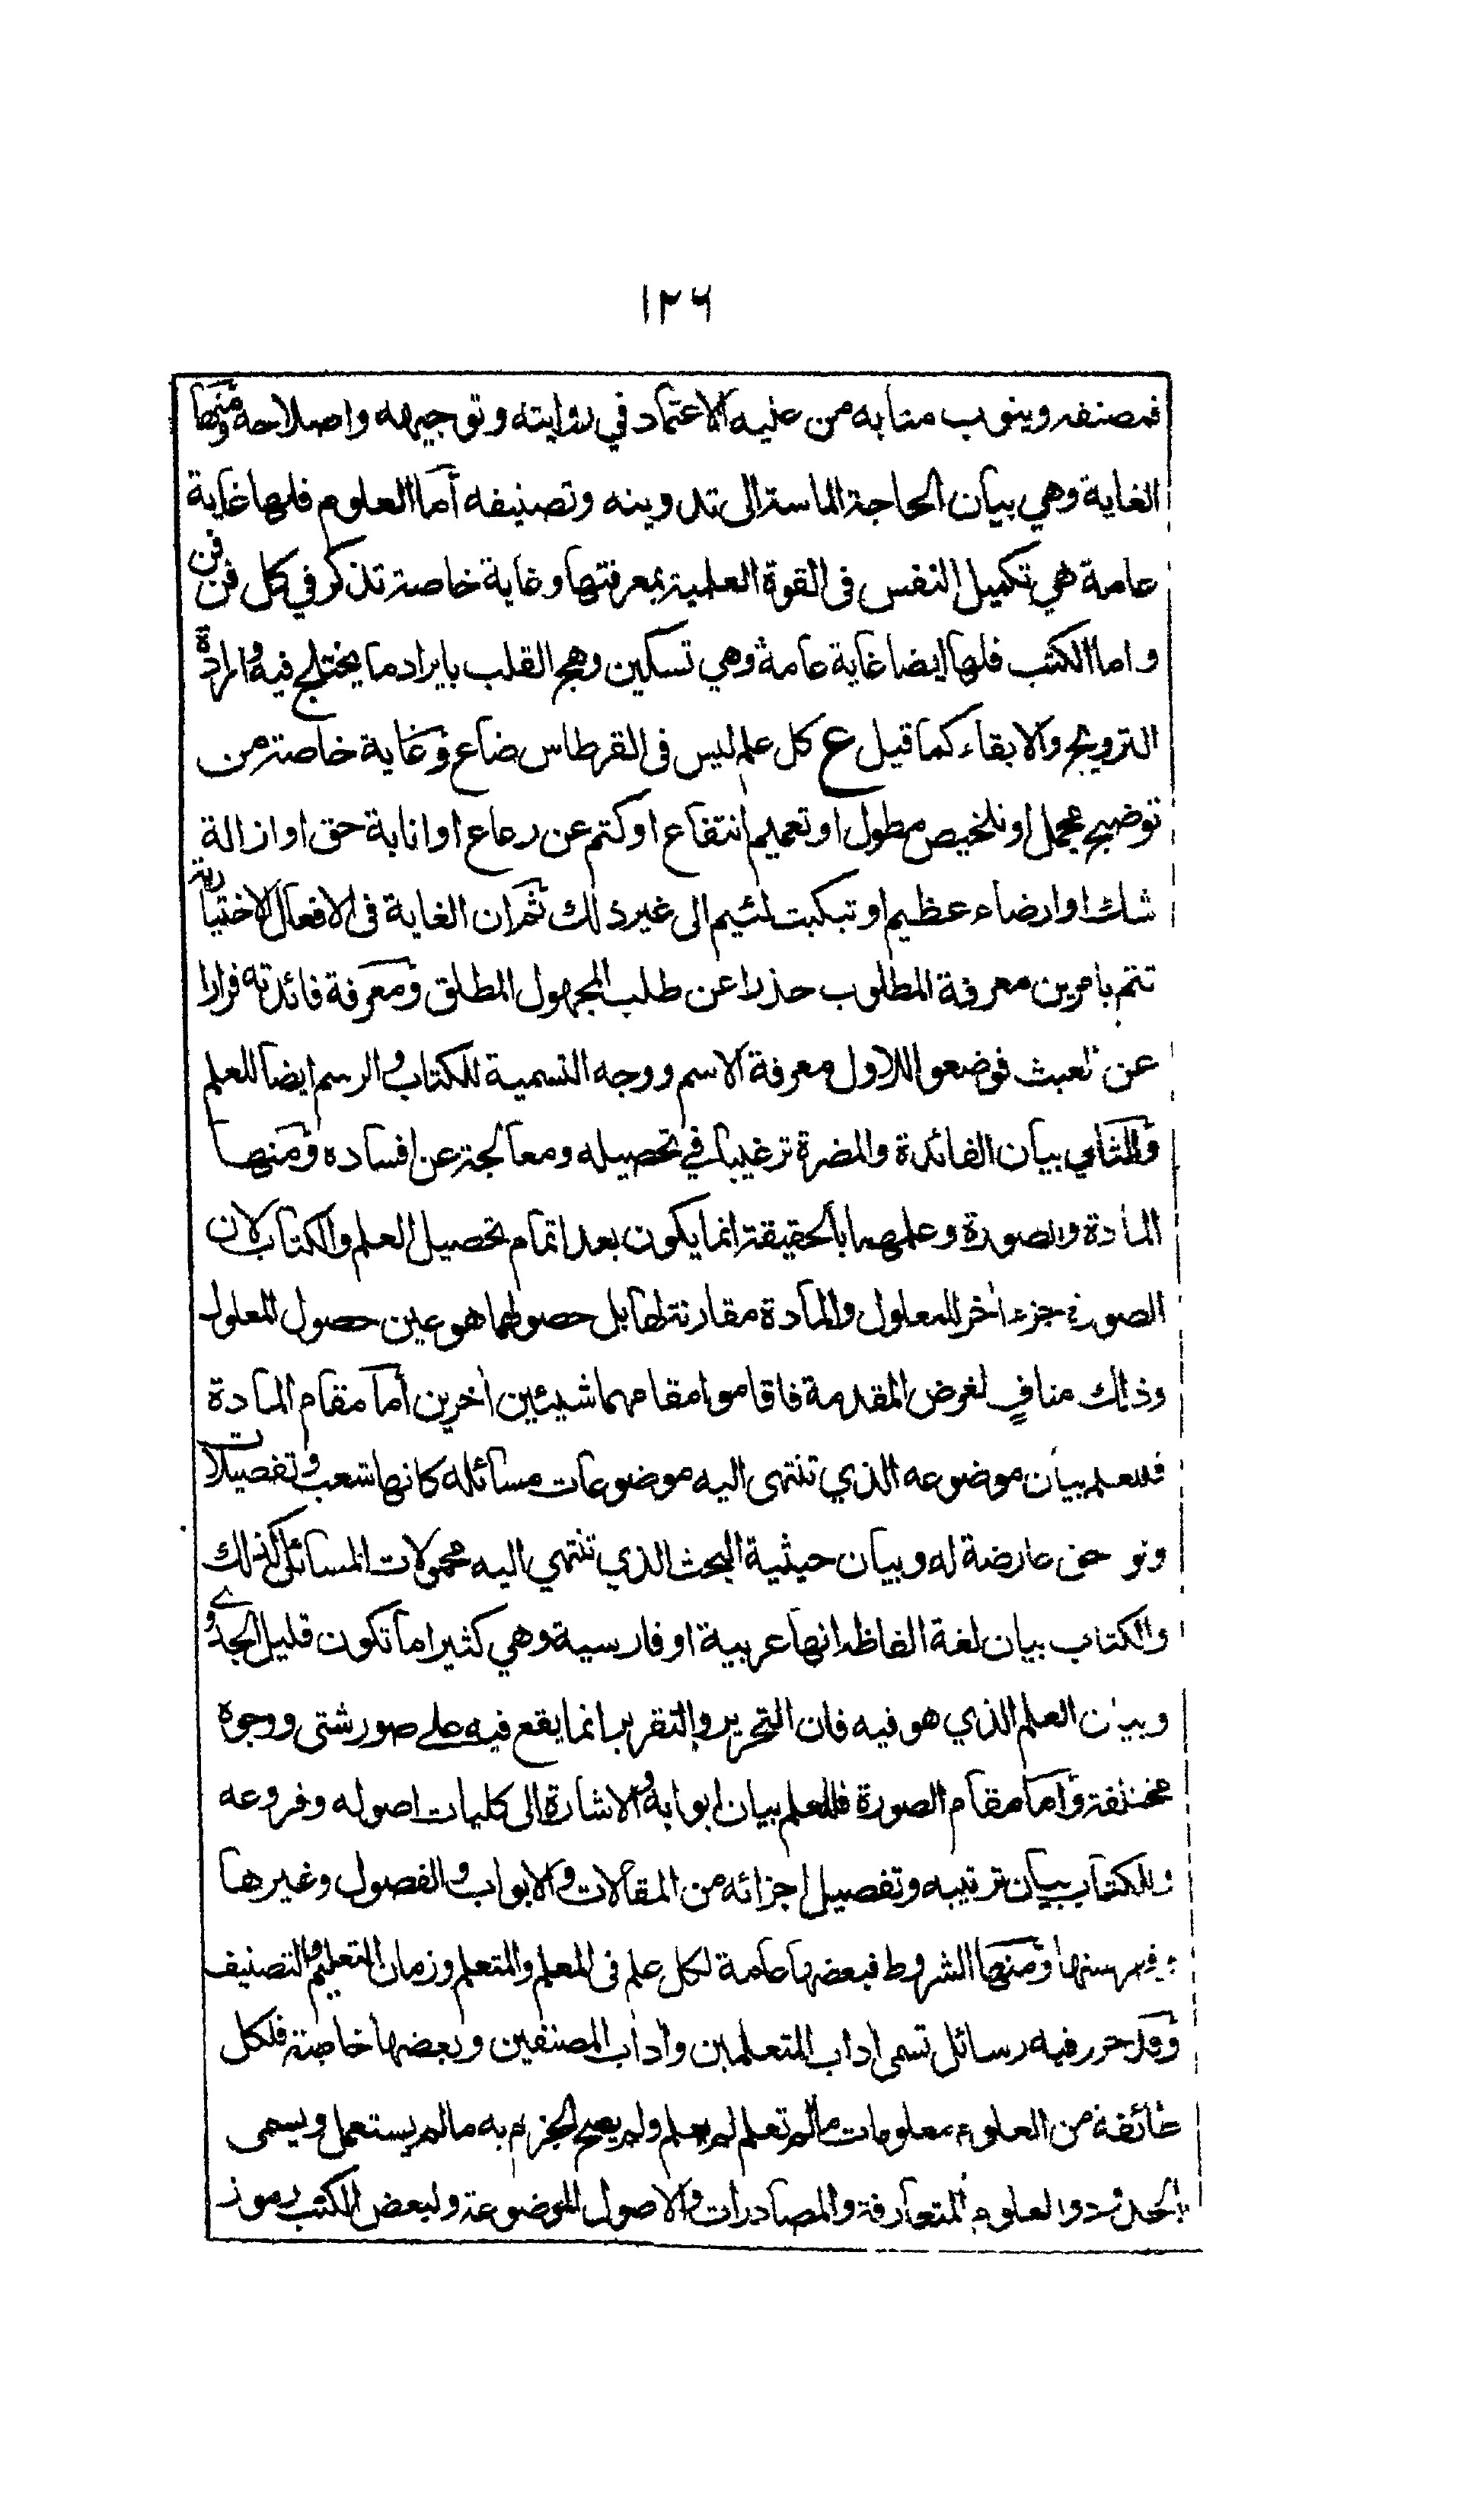 ١٢٦
فمصنفه وينوب منابه من عليه الاعتماد في روايته وتوجيهه واصلاحه ومنها
الغاية وهي بيان الحاجة الماسة الى تدوينه وتصنيفه أما العلوم فلها غاية
عامة هي تكميل النفس فى القوة العلمية بمعرفتها وغاية خاصة تذكر في كل فن فن
واما الكتب فلها ايضا غاية عامة وهي تسكين وهج القلب بايراد ما يختلج فيه وارادة
الترويج والابقاء كما قيل ع كل علم ليس فى القرطاس ضاع وغاية خاصة من
توضيح مجمل او تلخيص مطول او تعميم انتفاع او كتم عن رعاع او انابة حق او ازالة
شك او ارضاء عظيم او تبكيت لئيم الى غير ذلك ثم ان الغاية فى الافعال الاختيارية
تتم بامرين معرفة المطلوب حذرا عن طلب المجهول المطلق ومعرفة فائدته فرارا
عن العبث فوضعوا للاول معرفة الاسم ووجه التسمية للكتاب والرسم ايضا للعلم
وللثاني بيان الفائدة والمضرة ترغيبا في تحصيله ومعالجة عن افساده ومنها
المادة والصورة وعلمهما بالحقيقة انما يكون بعد اتمام تحصيل العلم والكتاب لان
الصورة جزء أخر للمعلول والمادة مقارنة لها بل حصولهما هو عين حصول المعلول
وذلك منافٍ لغرض المقدمة فاقاموا مقامهما شيئين أخرين أما مقام المادة
فللعلم بيان موضوعه الذي تنتهى اليه موضوعات مسائله كانها شعب وتفصيلات
ونواحى عارضة له وبيان حيثية البحث الذي تنتهي اليه محمولات المسائل كذلك
والكتاب بيان لغة الفاظه انها عربية او فارسية وهي كثيرا ما تكون قليل الجدوى
وبيان العلم الذي هو فيه فان التحرير والتقرير انما يقع فيه على صور شتى ووجوه
مختلفة وأما مقام الصورة فللعلم بيان ابوابه والاشارة الى كليات اصوله وفروعه
وللكتاب بيان ترتيبه وتفصيل اجزائه من المقالات والابواب والفصول وغيرها
وفهرستها ومنها الشروط فبعضها عامة لكل علم فى المعلم والمتعلم وزمان التعليم والتصنيف
وقد حرر فيه رسائل تسمى اداب المتعلمين وأداب المصنفين وبعضها خاصة فلكل
طائفة من العلوم معلومات ما لم تعلم لم يعلم ولم يصح الجزم به ما لم يستعمل ويسمى
بالحدود والعلوم المتعارفة والمصادرات والاصول الموضوعة ولبعض الكتب رموز